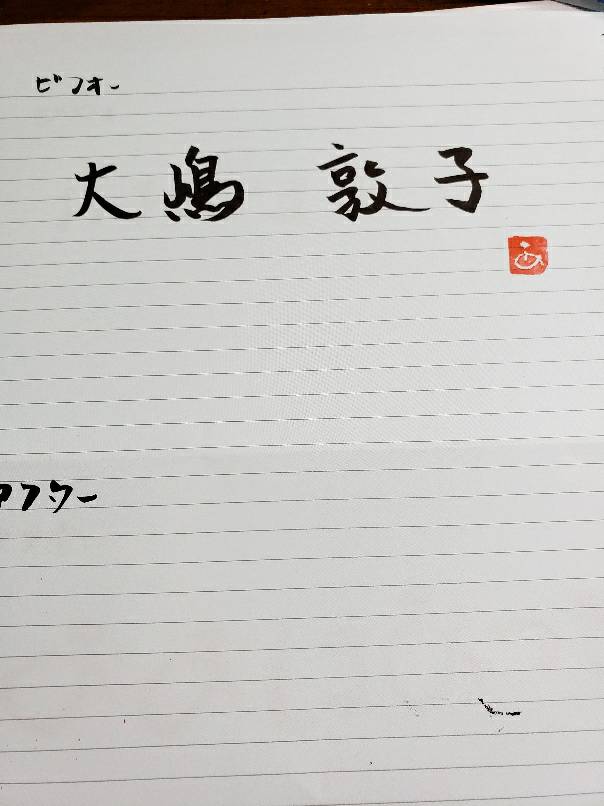 ビフォー
大嶋 敦子
アフター